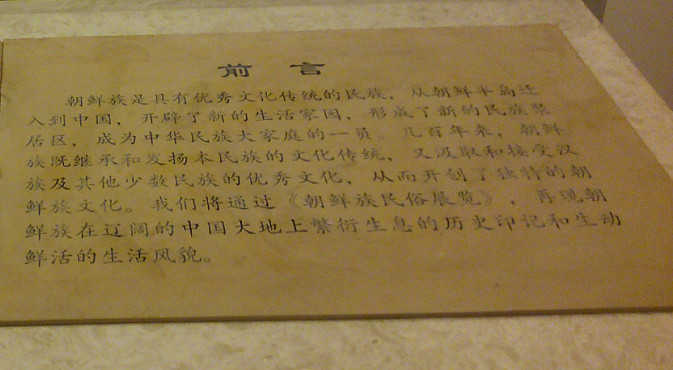 前言
朝鲜族是具有优秀文化传统的民族，从朝鲜半岛迁
入到中国，开辟了新的生活家园，形成了新的民族聚
居区，成为中华民族大家庭的一员。几百年来，朝鲜
族既继承和发扬本民族的文化传统，又汲取和接受汉
族及其他少数民族的优秀文化，从而开创了独特的朝
鲜族文化。我们将通过《朝鲜族民俗展览》，再现朝
鲜族在辽阔的中国大地上繁衍生息的历史印记和生动
鲜活的生活风貌。